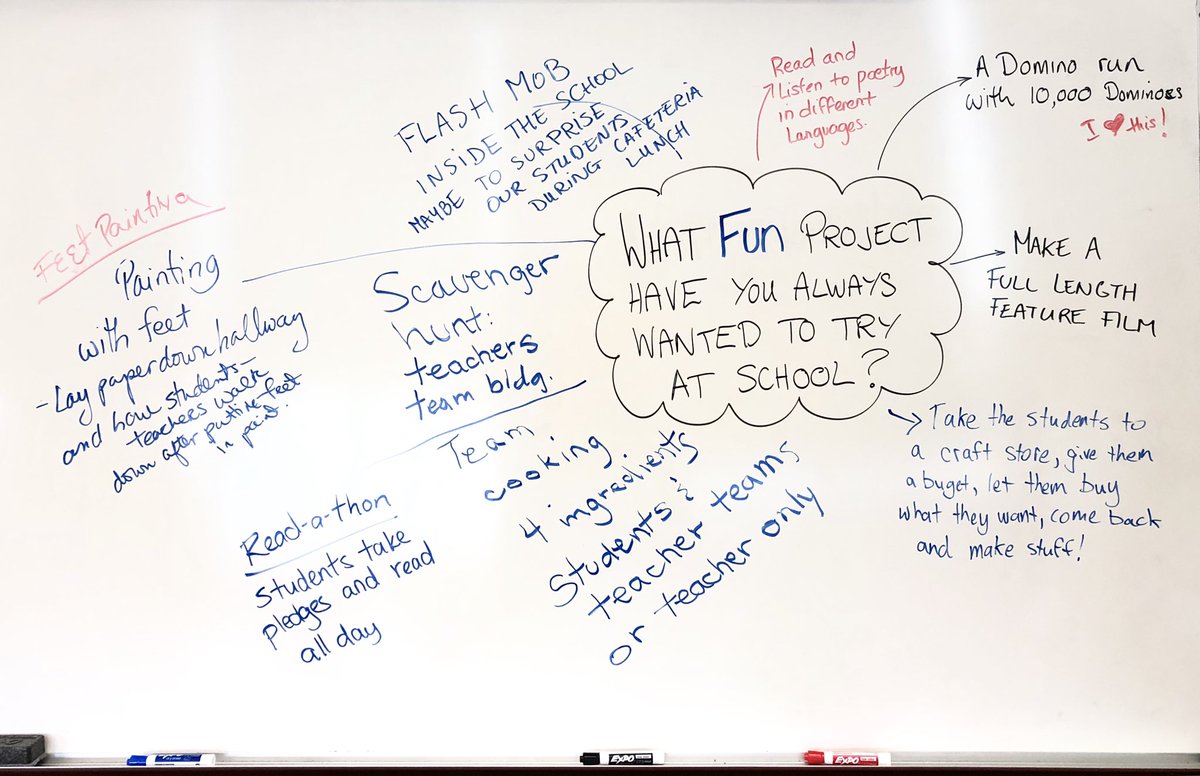 WHAT FUN PROJECT
HAVE YOU ALWAYS
WANTED TO TRY
AT SCHOOL?
FLASH MOB
INSIDE THE SCHOOL
MAYBE TO SURPRISE
OUR STUDENTS
DURING CAFETERIA
LUNCH
Read and
Listen to poetry
in different
Languages.
A DOMINO run
with 10,000 DOMINOES
I ♥ this!
MAKE A
FULL LENGTH
FEATURE FILM
Take the students to
a craft store, give them
a buget, let them buy
what they want, come back
and make stuff!
FEET Painting
Painting
with feet
- Lay paper down hallway
and have students-
teachers walk
down after putting feet
in paint.
Scavenger
hunt:
teachers
team bldg.
Team
cooking.
4 ingredients
Students &
teacher teams
or teacher only
Read-a-thon
students take
pledges and read
all day
EXPO
EXPO